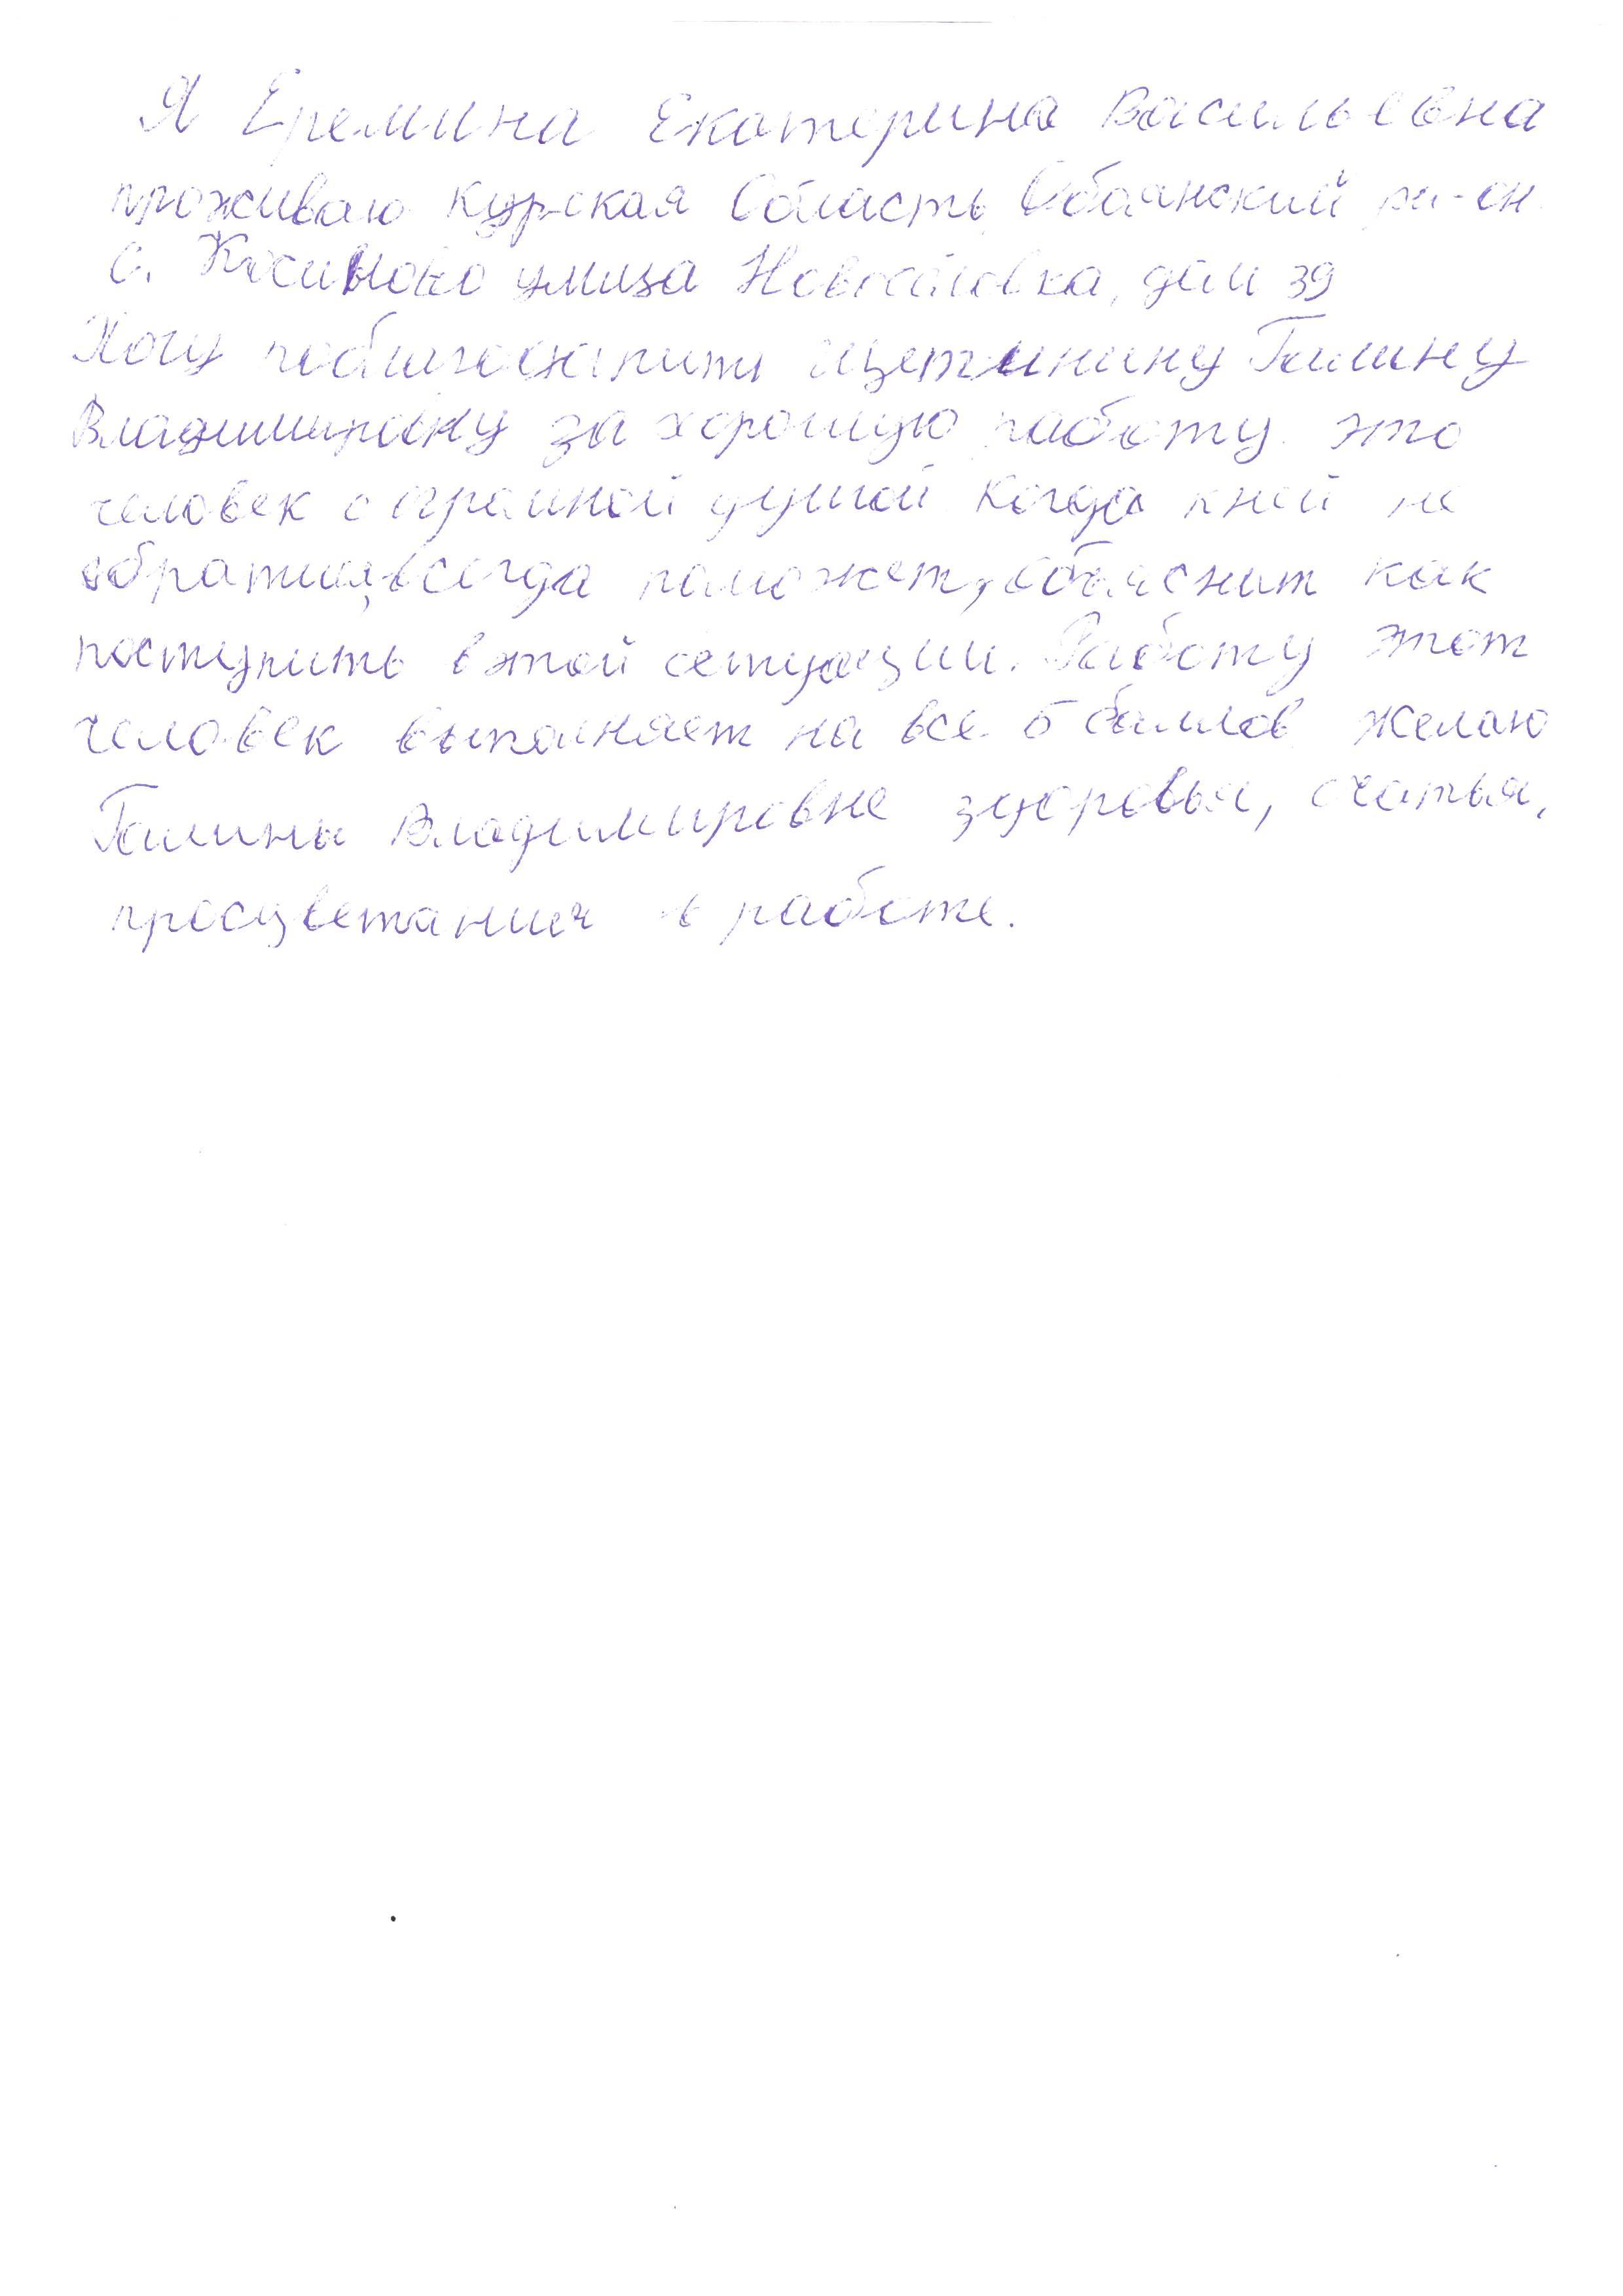 Я Еремина Екатерина Васильевна
проживаю Курская Область Обоянский ра-он
с. Косиново улица Новоселовка, дом 39
Хочу поблагодарить Щетинину Галину
Владимировну за хорошую работу это
человек с огромной душой когда кней не
обратишся,всегда поможет, объяснит как
поступить в этой сетуации. Работу этот
человек выполняет на все 5 баллов желаю
Галины Владимировне здоровья, счатья,
просцветания в работе.